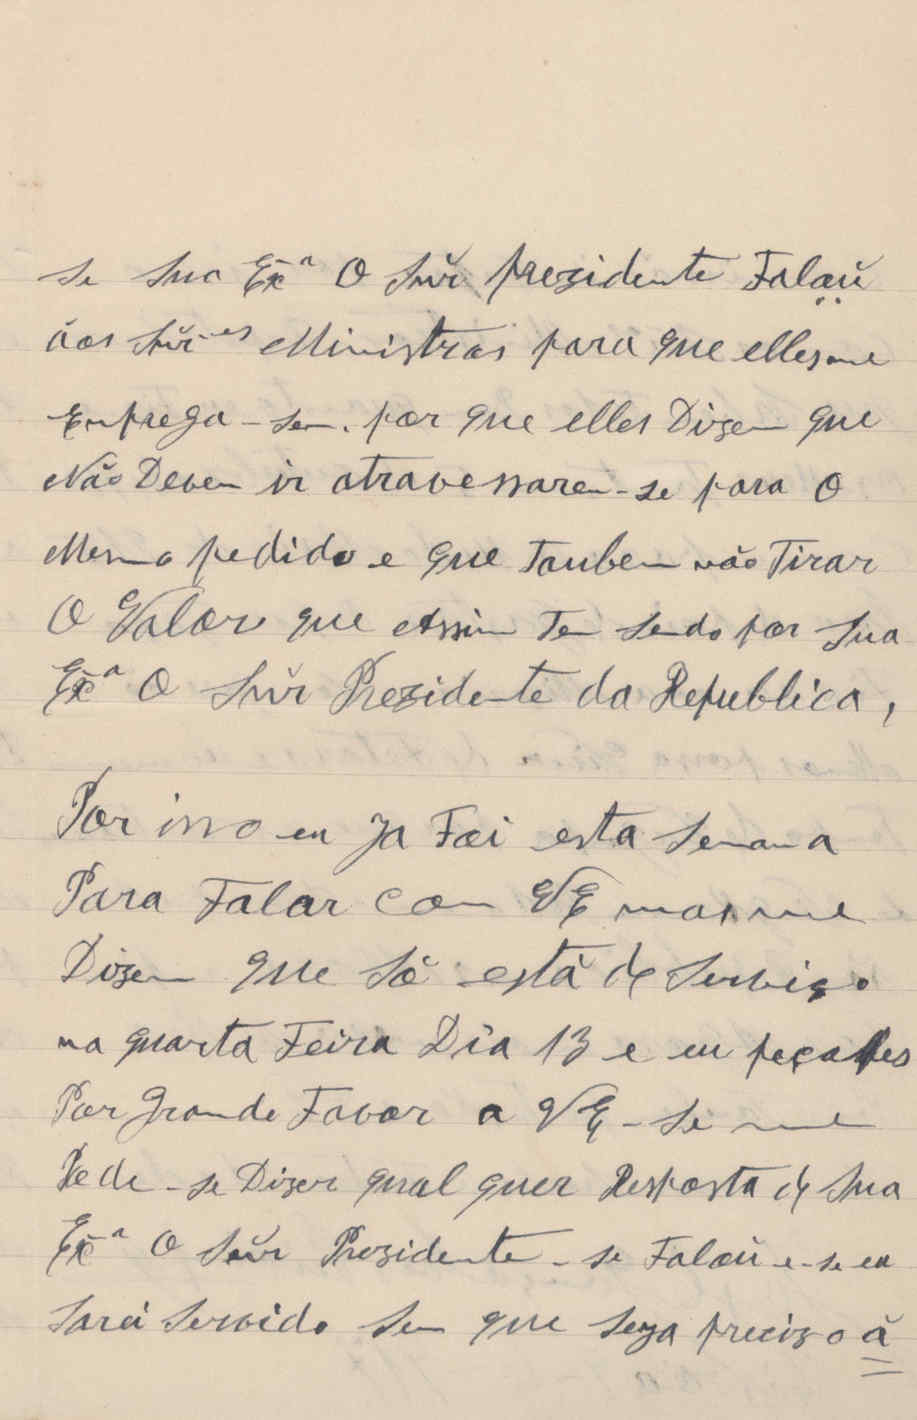 se sua Exª O Snr prezidente Falou
áos Snr.es Ministros para que elles me
Emprega-sem. por que elles Dizem que
Não Devem ir atravessarem-se para O
Mesmo pedido e que Tanbem não Tirar
O Valor que Assim Tem sendo por Sua
Exª O Snr Prezidente da Republica,
Por isso eu Ja Foi esta semana
Para Falar com VE mas me
Dizem que Só está de serviço
na quarta Feira Dia 13 e eu peça
Por Grande Favor a VE - se me
Pede-se Dizer qual quer Resposta de Sua
Exª O Senr Prezidente - se Falou e-se eu
Sarei Servido Sem que seza precizo á